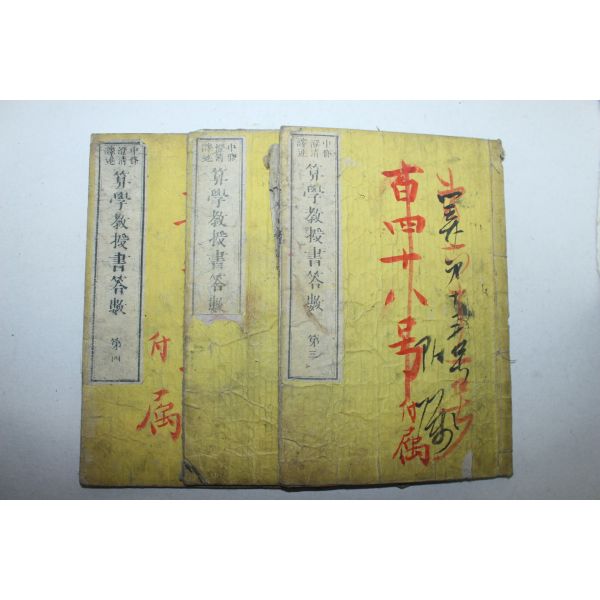 百四十八号
付属
附属
中條
澄清
譯述
算學教授書答數
第三
中條
澄清
譯述
算學教授書答數
付
属
中條
澄清
譯述
算學教授書答數
第四